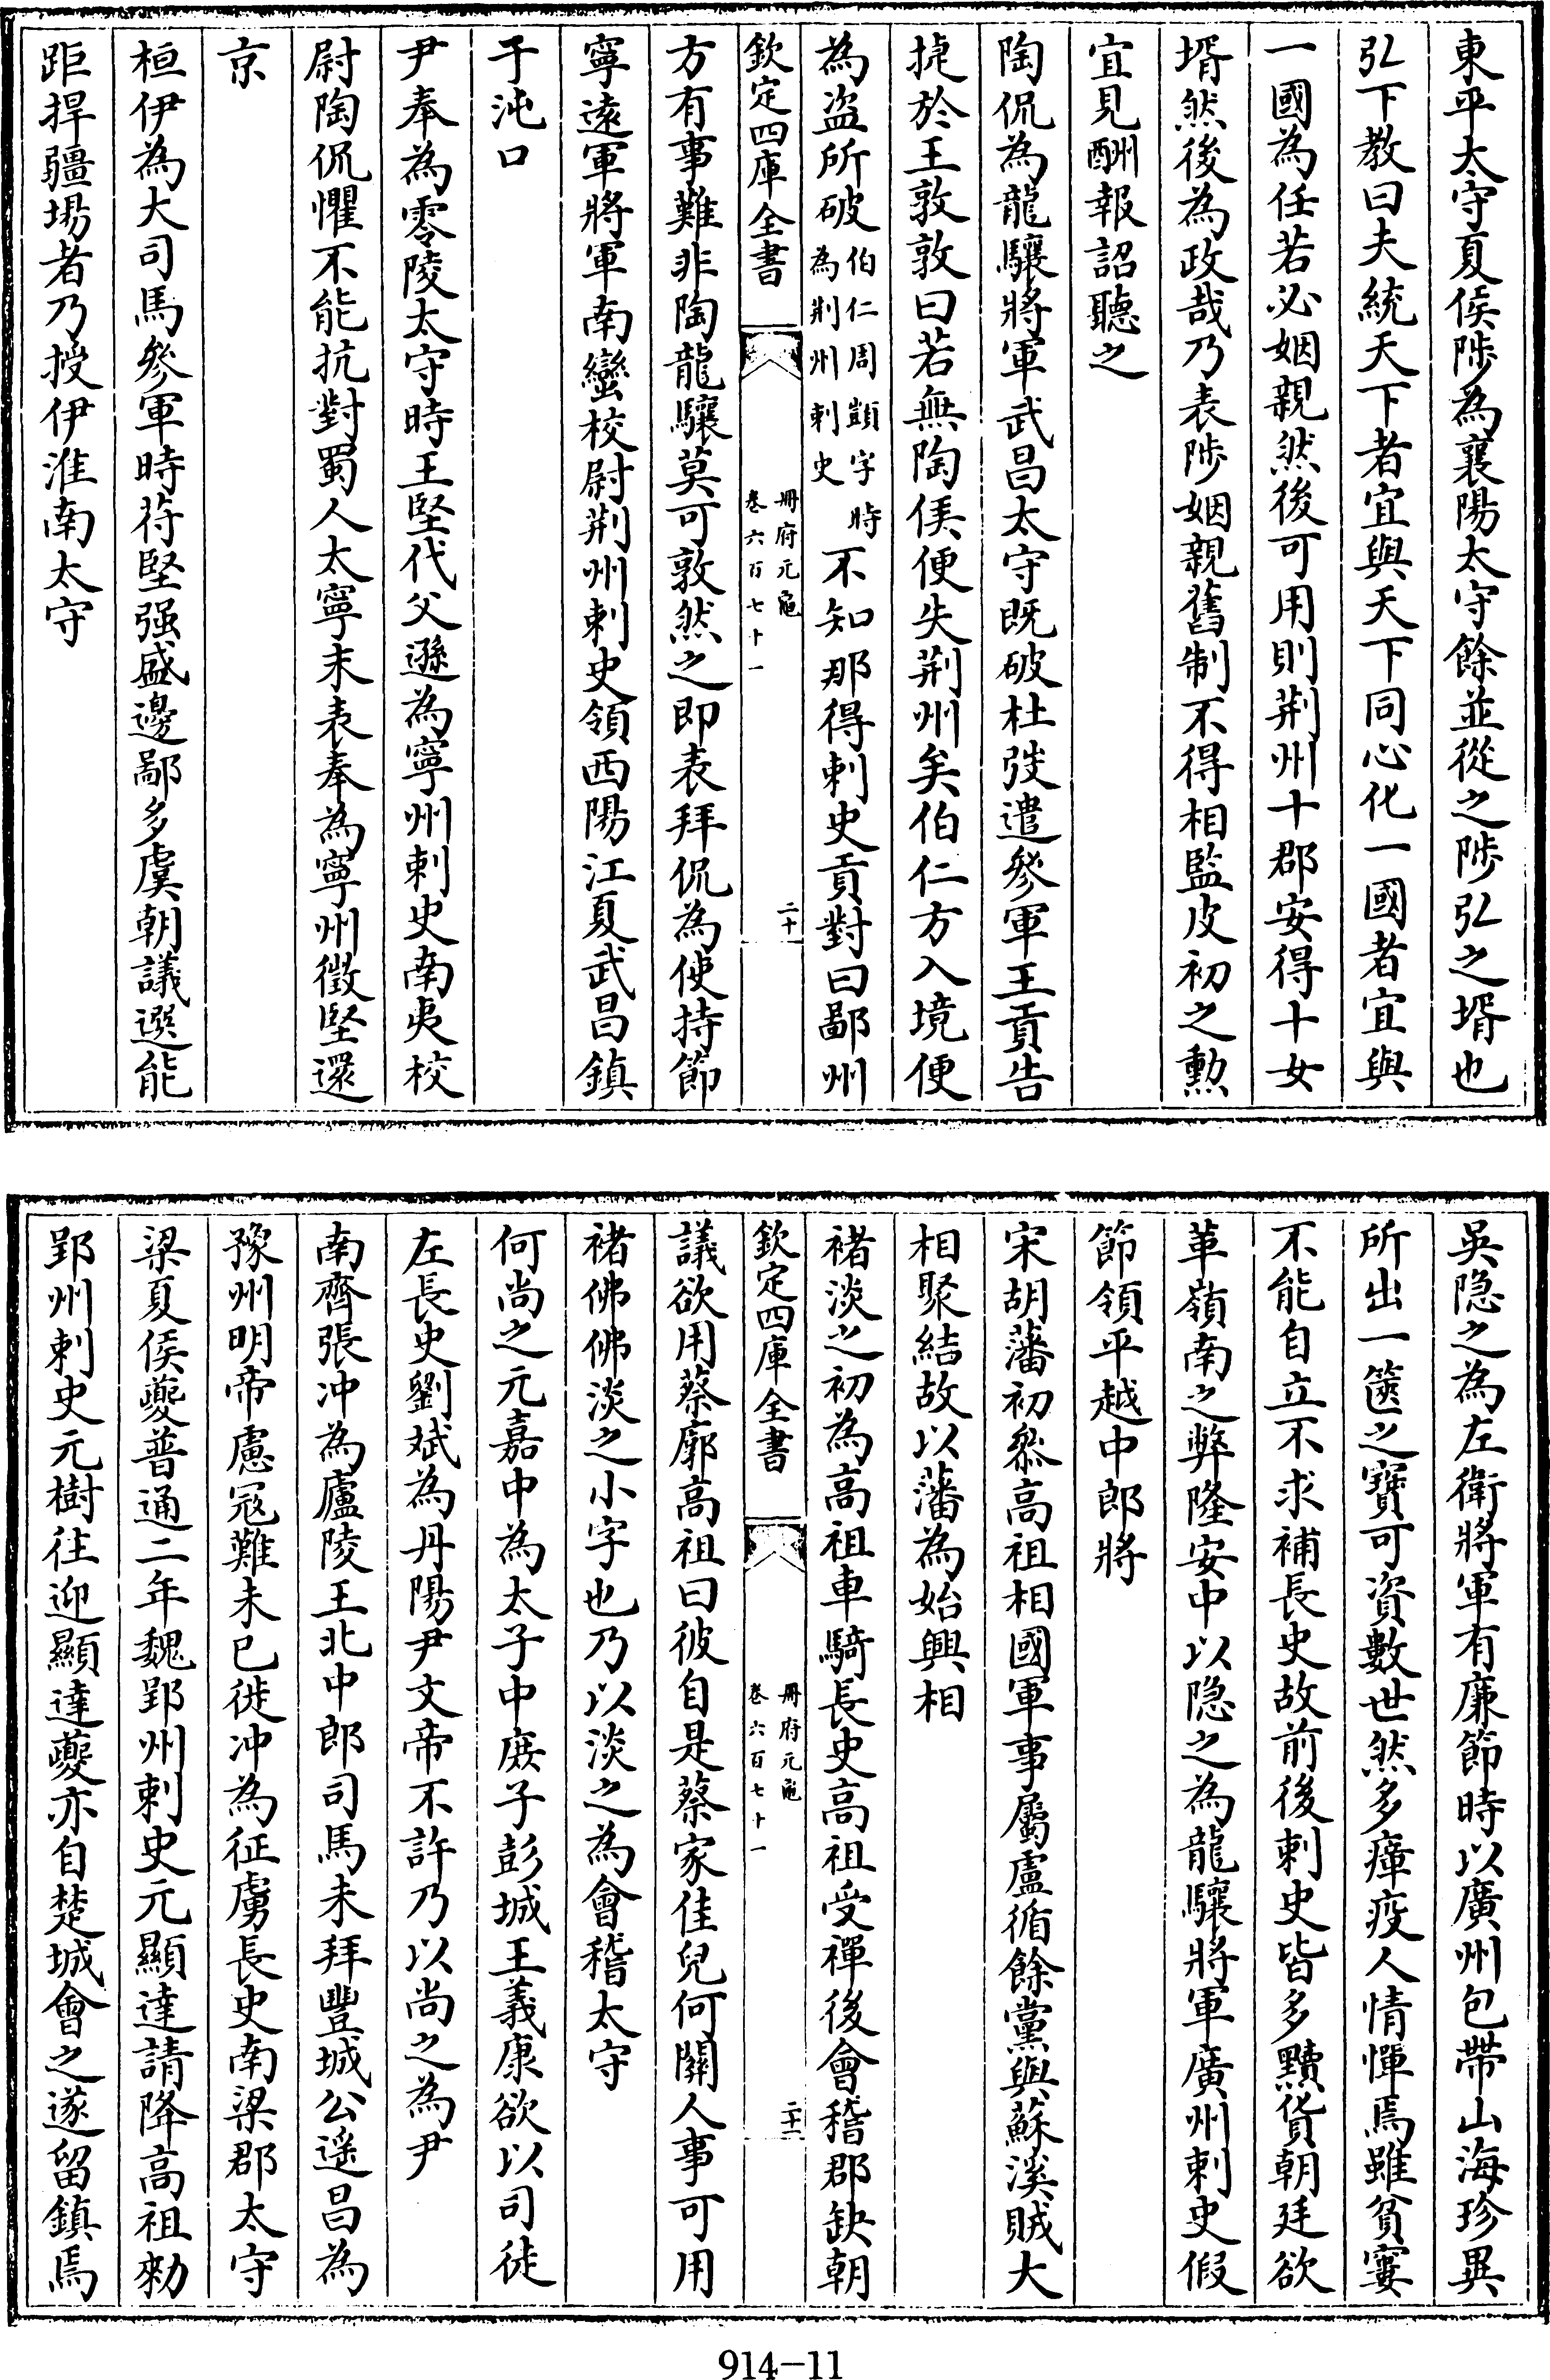 東平太守夏侯陟為襄陽太守餘並從之陟弘之壻也
弘下教曰夫統天下者宜與天下同心化一國者宜與
一國為任若必姻親然後可用則荆州十郡安得十女
壻然後為政哉乃表陟姻親舊制不得相監皮初之勲
宜見酬報詔聽之
陶侃為龍驤將軍武昌太守既破杜弢遣參軍王貢告
捷於王敦敦曰若無陶侯便失荆州矣伯仁方入境便
為盗所破伯仁周顗字時為荆州刺史不知那得刺史貢對曰鄙州
欽定四庫全書 冊府元龜 卷六百七十一 二十
方有事難非陶龍驤莫可敦然之即表拜侃為使持節
寧遠軍將軍南蠻校尉荆州刺史領西陽江夏武昌鎮
于沌口
尹奉為零陵太守時王堅代父遜為寧州刺史南夷校
尉陶侃懼不能抗對蜀人太寧末表奉為寧州徵堅還
京
桓伊為大司馬參軍時苻堅强盛邊鄙多虞朝議選能
距捍疆埸者乃授伊淮南太守
吳隐之為左衛將軍有廉節時以廣州包帶山海珍異
所出一篋之寶可資數世然多瘴疫人情憚焉雖貧窶
不能自立不求補長史故前後刺史皆多黷貨朝廷欲
革嶺南之弊隆安中以隐之為龍驤將軍廣州刺史假
節領平越中郎將
宋胡藩初叅高祖相國軍事屬盧循餘黨與蘇溪賊大
相聚結故以藩為始興相
褚淡之初為高祖車騎長史高祖受禪後會稽郡缺朝
欽定四庫全書 冊府元龜 卷六百七十一 二十一
議欲用蔡廓高祖曰彼自是蔡家佳兒何關人事可用
褚佛佛淡之小字也乃以淡之為會稽太守
何尚之元嘉中為太子中庶子彭城王義康欲以司徒
左長史劉斌為丹陽尹文帝不許乃以尚之為尹
南齊張沖為廬陵王北中郎司馬未拜豐城公遥昌為
豫州明帝慮冦難未已徙冲為征虜長史南梁郡太守
梁夏侯夔普通二年魏郢州刺史元顯達請降高祖勑
郢州刺史元樹往迎顯達夔亦自楚城會之遂留鎮焉
914-11